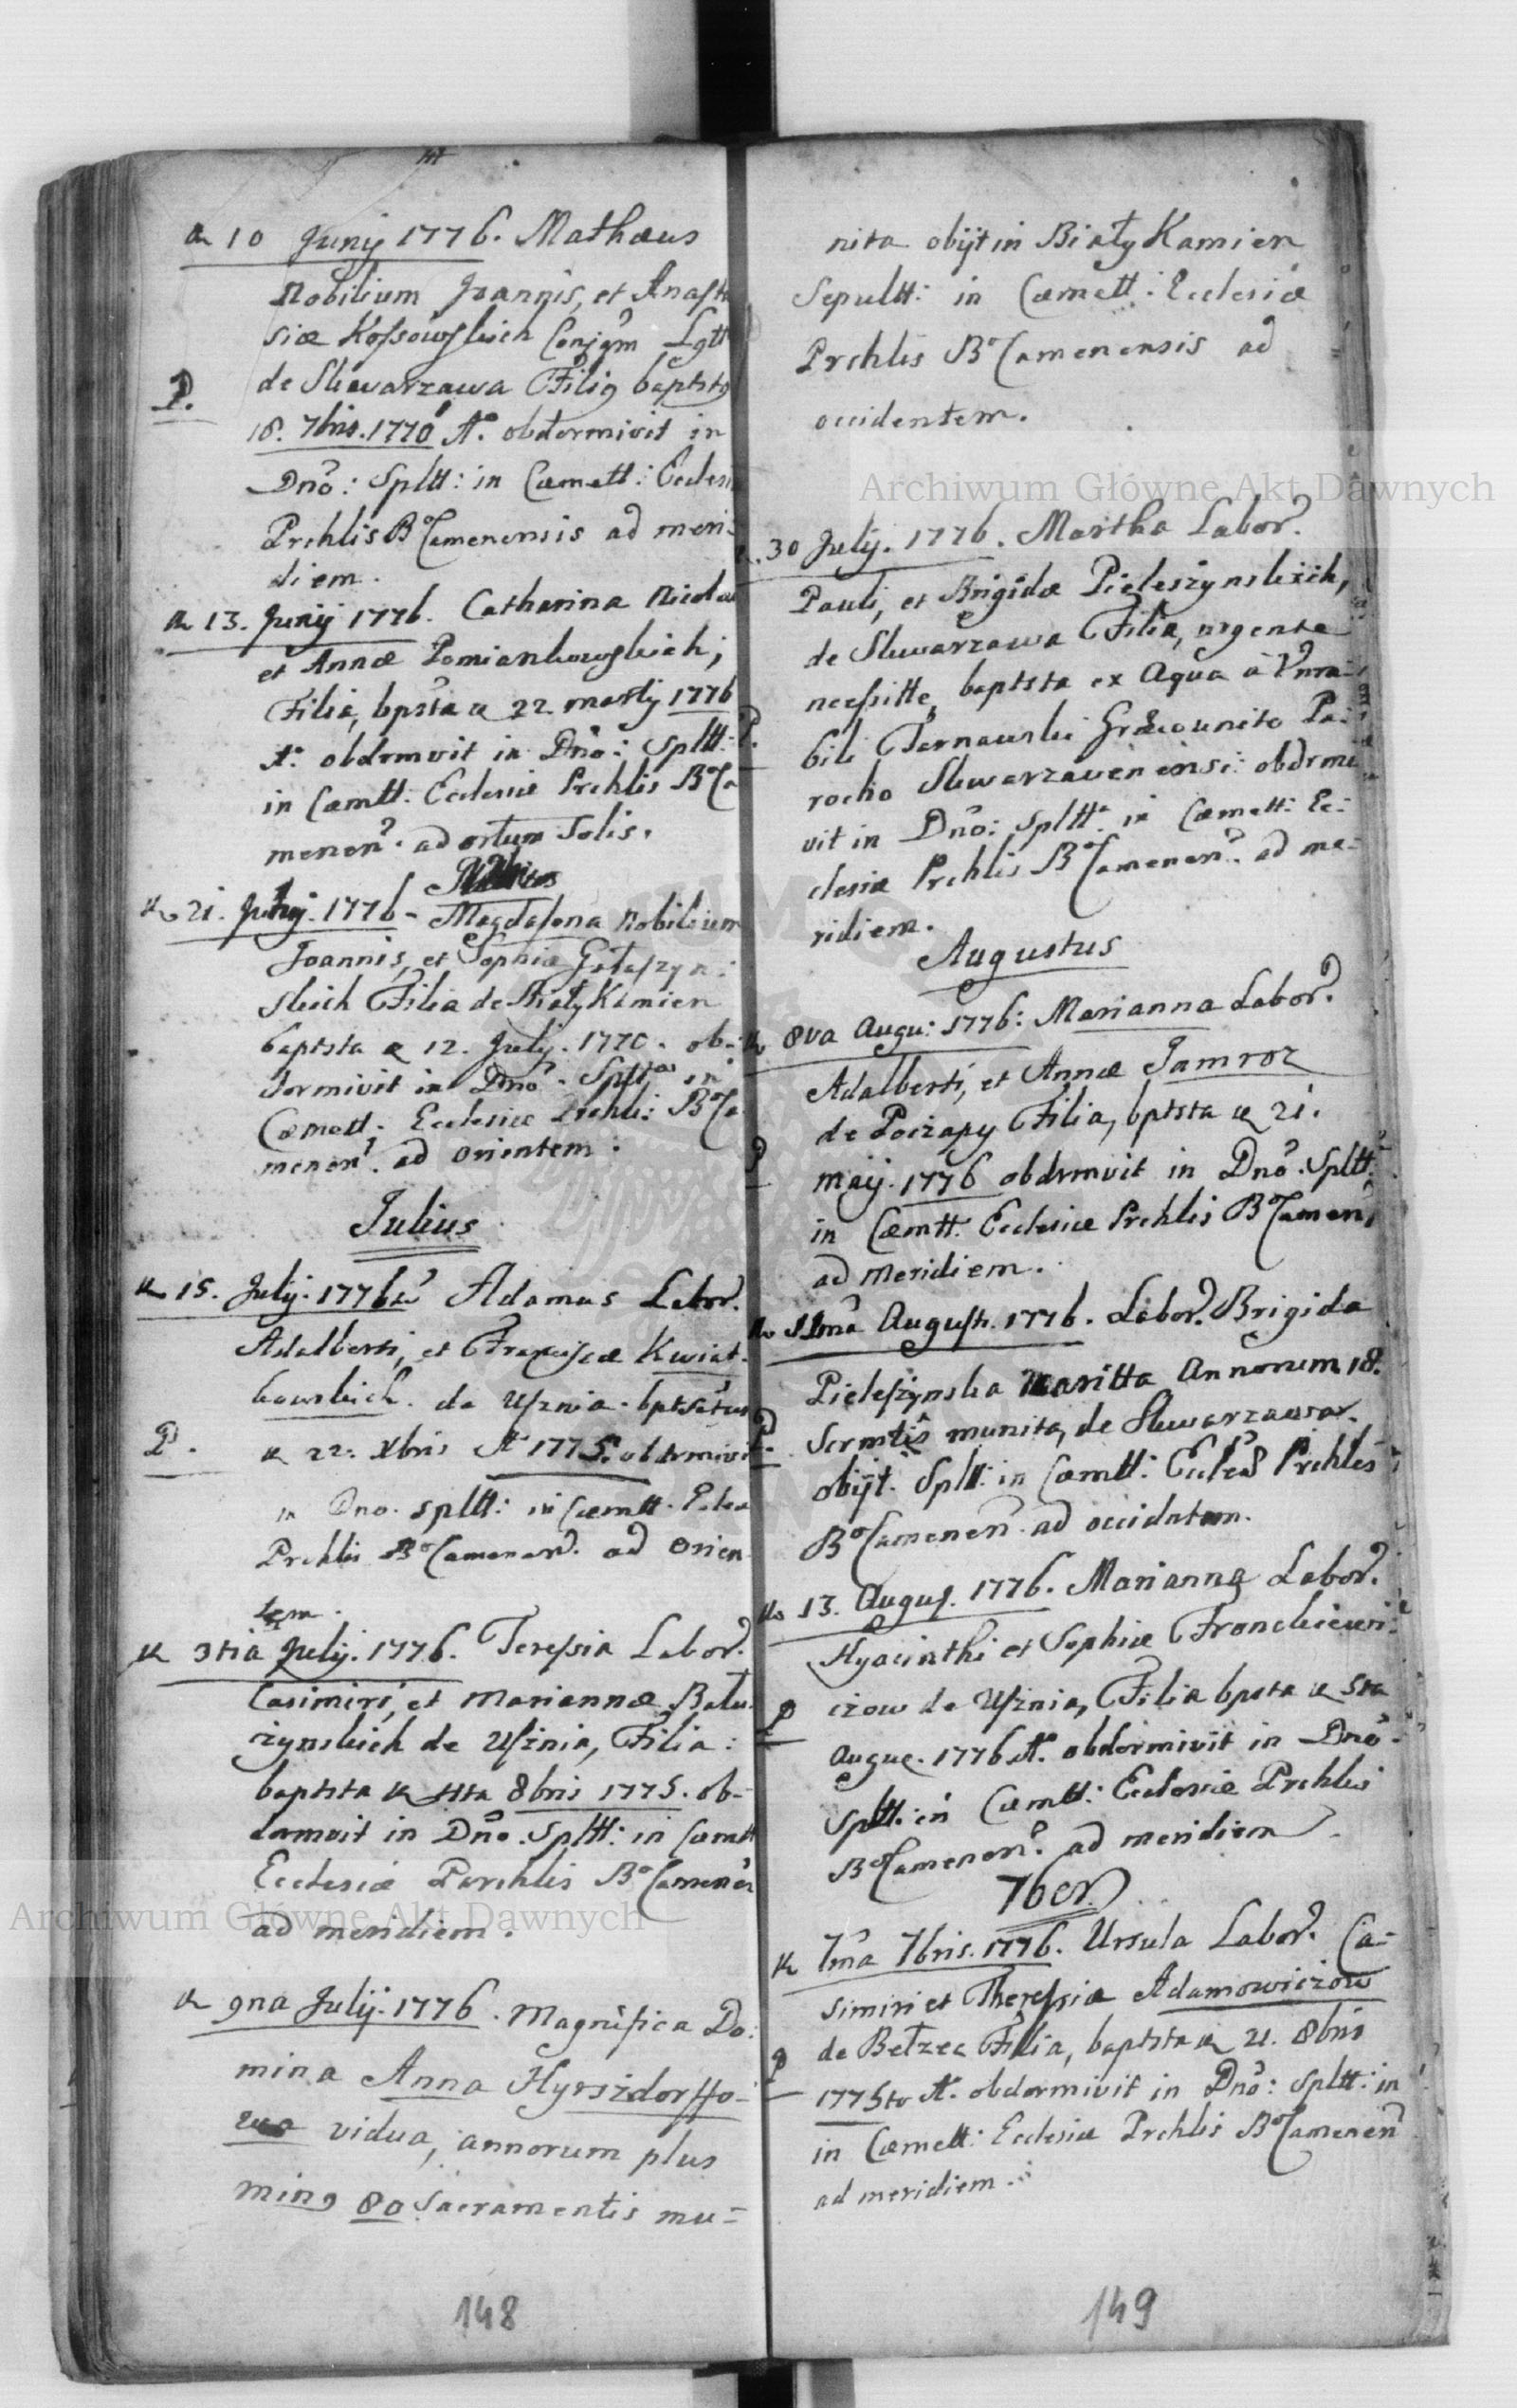 10 Junij 1776. Mathæus
Nobilium Joannis, et Anasta
siæ Kossowskich Conjgm Lgtt
de Skwarzawa Filig baptstg
P.
18. 7bris. 1770 A° obdormivit in
Dno: Spltt: in Cæmett: Ecclesi
Prchlis B° Camenensis ad meri:
diem.
13. Junij 1776. Catharina Nicolai
et Annæ Pomiankowskich,
Filia, bpsta 22 Martij 1776
A° obdrmvit in Dno: Spltt:
in Cæmtt: Ecclesiæ Prchlis B° Ca
menen. ad ortum Solis.
21. 1776 - Magdalena Nobilium
Joannis, et Sophiæ
skich Filia de Biały Kamien
baptsta 12. July. 1770. ob-
dormivit in Dno. Spltt in
Cæmett: Ecclesiæ Prchli: B° Ca
menen. ad Orientem.
Julius
15. Julij. 1776 Adamus Labor.
Adalberti, et Franciscæ Kwiat-
kowskich. de Usznia. bptsatus
P.
22. Xbris A° 1775. obdrmivit
in Dno. spltt: in Cæmtt. Eclesi
Prchlis B° Camenen. ad Orien
tem.
3tia Julij. 1776. Teressia Labor.
Casimiri, et Mariannæ Batu
rzynskich de Usznia, Filia:
baptsta 4ta 8bris 1775. ob-
dormvit in Dno. Spltt: in Cæmtt
Ecclesiæ Parchlis B° Camenen
ad meridiem.
9na Julij. 1776. Magnifica Do:
mina Anna Hyrszdorffo-
wa vidua, annorum plus
ming 80 Sacramentis mu=
148
nita obijt in Biały Kamien
Sepultt: in Cæmett: Ecclesiæ
Prchlis B° Camenensis ad
occidentem.
30 July. 1776. Martha Labor.
Pauli, et Brigidæ Pieleszynskich,
de Skwarzawa Filia, urgente
necessitte, baptsta ex Aqua à Vnra
P.
bili Tarnawski Græcounito Pa:
rocho Skwarzavenensi: obdrmi
vit in Dno: Spltt: in Cæmett: Ec:
clesiæ Prchlis B° Camenen. ad me:
ridiem.
Augustus
8va Augu: 1776: Marianna Labor.
Adalberti, et Annæ Jamroz
de Poczapy Filia, bptsta 21.
P
Maij. 1776 obdrmvit in Dno. Spltt.
in Cæmtt. Ecclesiæ Prchlis B° Camen
ad Meridiem.
August. 1776. Labor. Brigida
Pieleszynska Maritta Annorum 18.
P.
Scrmtis munita, de Skwarzawa.
obijt. Spltt: in Cæmtt: Prchles
B° Camenen ad occidntem.
13. Augus. 1776. Marianna Labor.
Hyacinthi et Sophiæ Franckiewi:
P
czow de Usznia, Filia bpsta 5ta
Augus. 1776 A° obdormivit in Dno.
Spltt. in Cæmtt: Ecclesiæ Prchlis
B° Camenen. ad meridiem
7ber
7ma 7bris. 1776. Ursula Labor. Ca=
simiri et Theressiæ Adamowiczow
P
de Bełzec Filia, baptsta 21. 8bris
1775to A° obdormivit in Dno: Spltt: in
in Cæmett: Ecclesiæ Prchlis B° Camenen
ad meridiem.
149
Archiwum Główne Akt Dawnych
Archiwum Główne Akt Dawnych